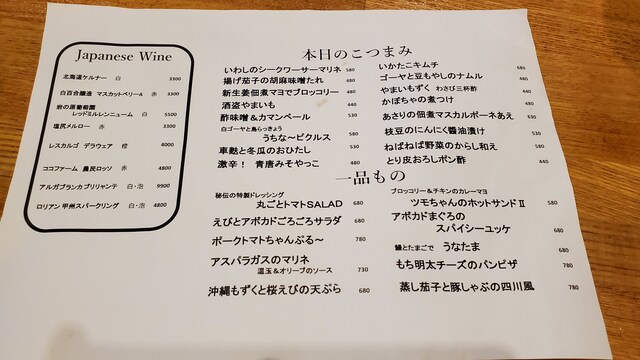 Japanese Wine
北海道ケルナー 白 3300
白百合醸造 マスカットベリーA 赤 3300
岩の原葡萄園
レッドミルレンニューム 白 5500
塩尻メルロー 赤 3300
レスカルゴ デラウェア 橙 4000
ココファーム 農民ロッソ 赤 4800
アルガブランカ ブリリャンテ 白・泡 9900
ロリアン 甲州スパークリング 白・泡 4800
本日のこつまみ
いわしのシークワーサーマリネ 580
揚げ茄子の胡麻味噌たれ 480
新生姜佃煮マヨでブロッコリー 480
酒盗やまいも 440
酢味噌&カマンベール 530
白ゴーヤと島らっきょう
うちな~ピクルス 580
車麩と冬瓜のおひたし 530
激辛! 青唐みそやっこ 480
いかたこキムチ 680
ゴーヤと豆もやしのナムル 480
やまいもずく わさび三杯酢 440
かぼちゃの煮つけ 480
あさりの佃煮マスカルポーネあえ 630
枝豆のにんにく醤油漬け 530
ねばねば野菜のからし和え 580
とり皮おろしポン酢 440
一品もの
秘伝の特製ドレッシング
丸ごとトマトSALAD 680
えびとアボカドごろごろサラダ 680
ポークトマトちゃんぷる~ 780
アスパラガスのマリネ
温玉&オリーブのソース 730
沖縄もずくと桜えびの天ぷら 680
ブロッコリー&チキンのカレーマヨ
ツモちゃんのホットサンドⅡ 580
アボカドまぐろの
スパイシーユッケ 680
鰻とたまごで うなたま 680
もち明太チーズのパンピザ 780
蒸し茄子と豚しゃぶの四川風 780